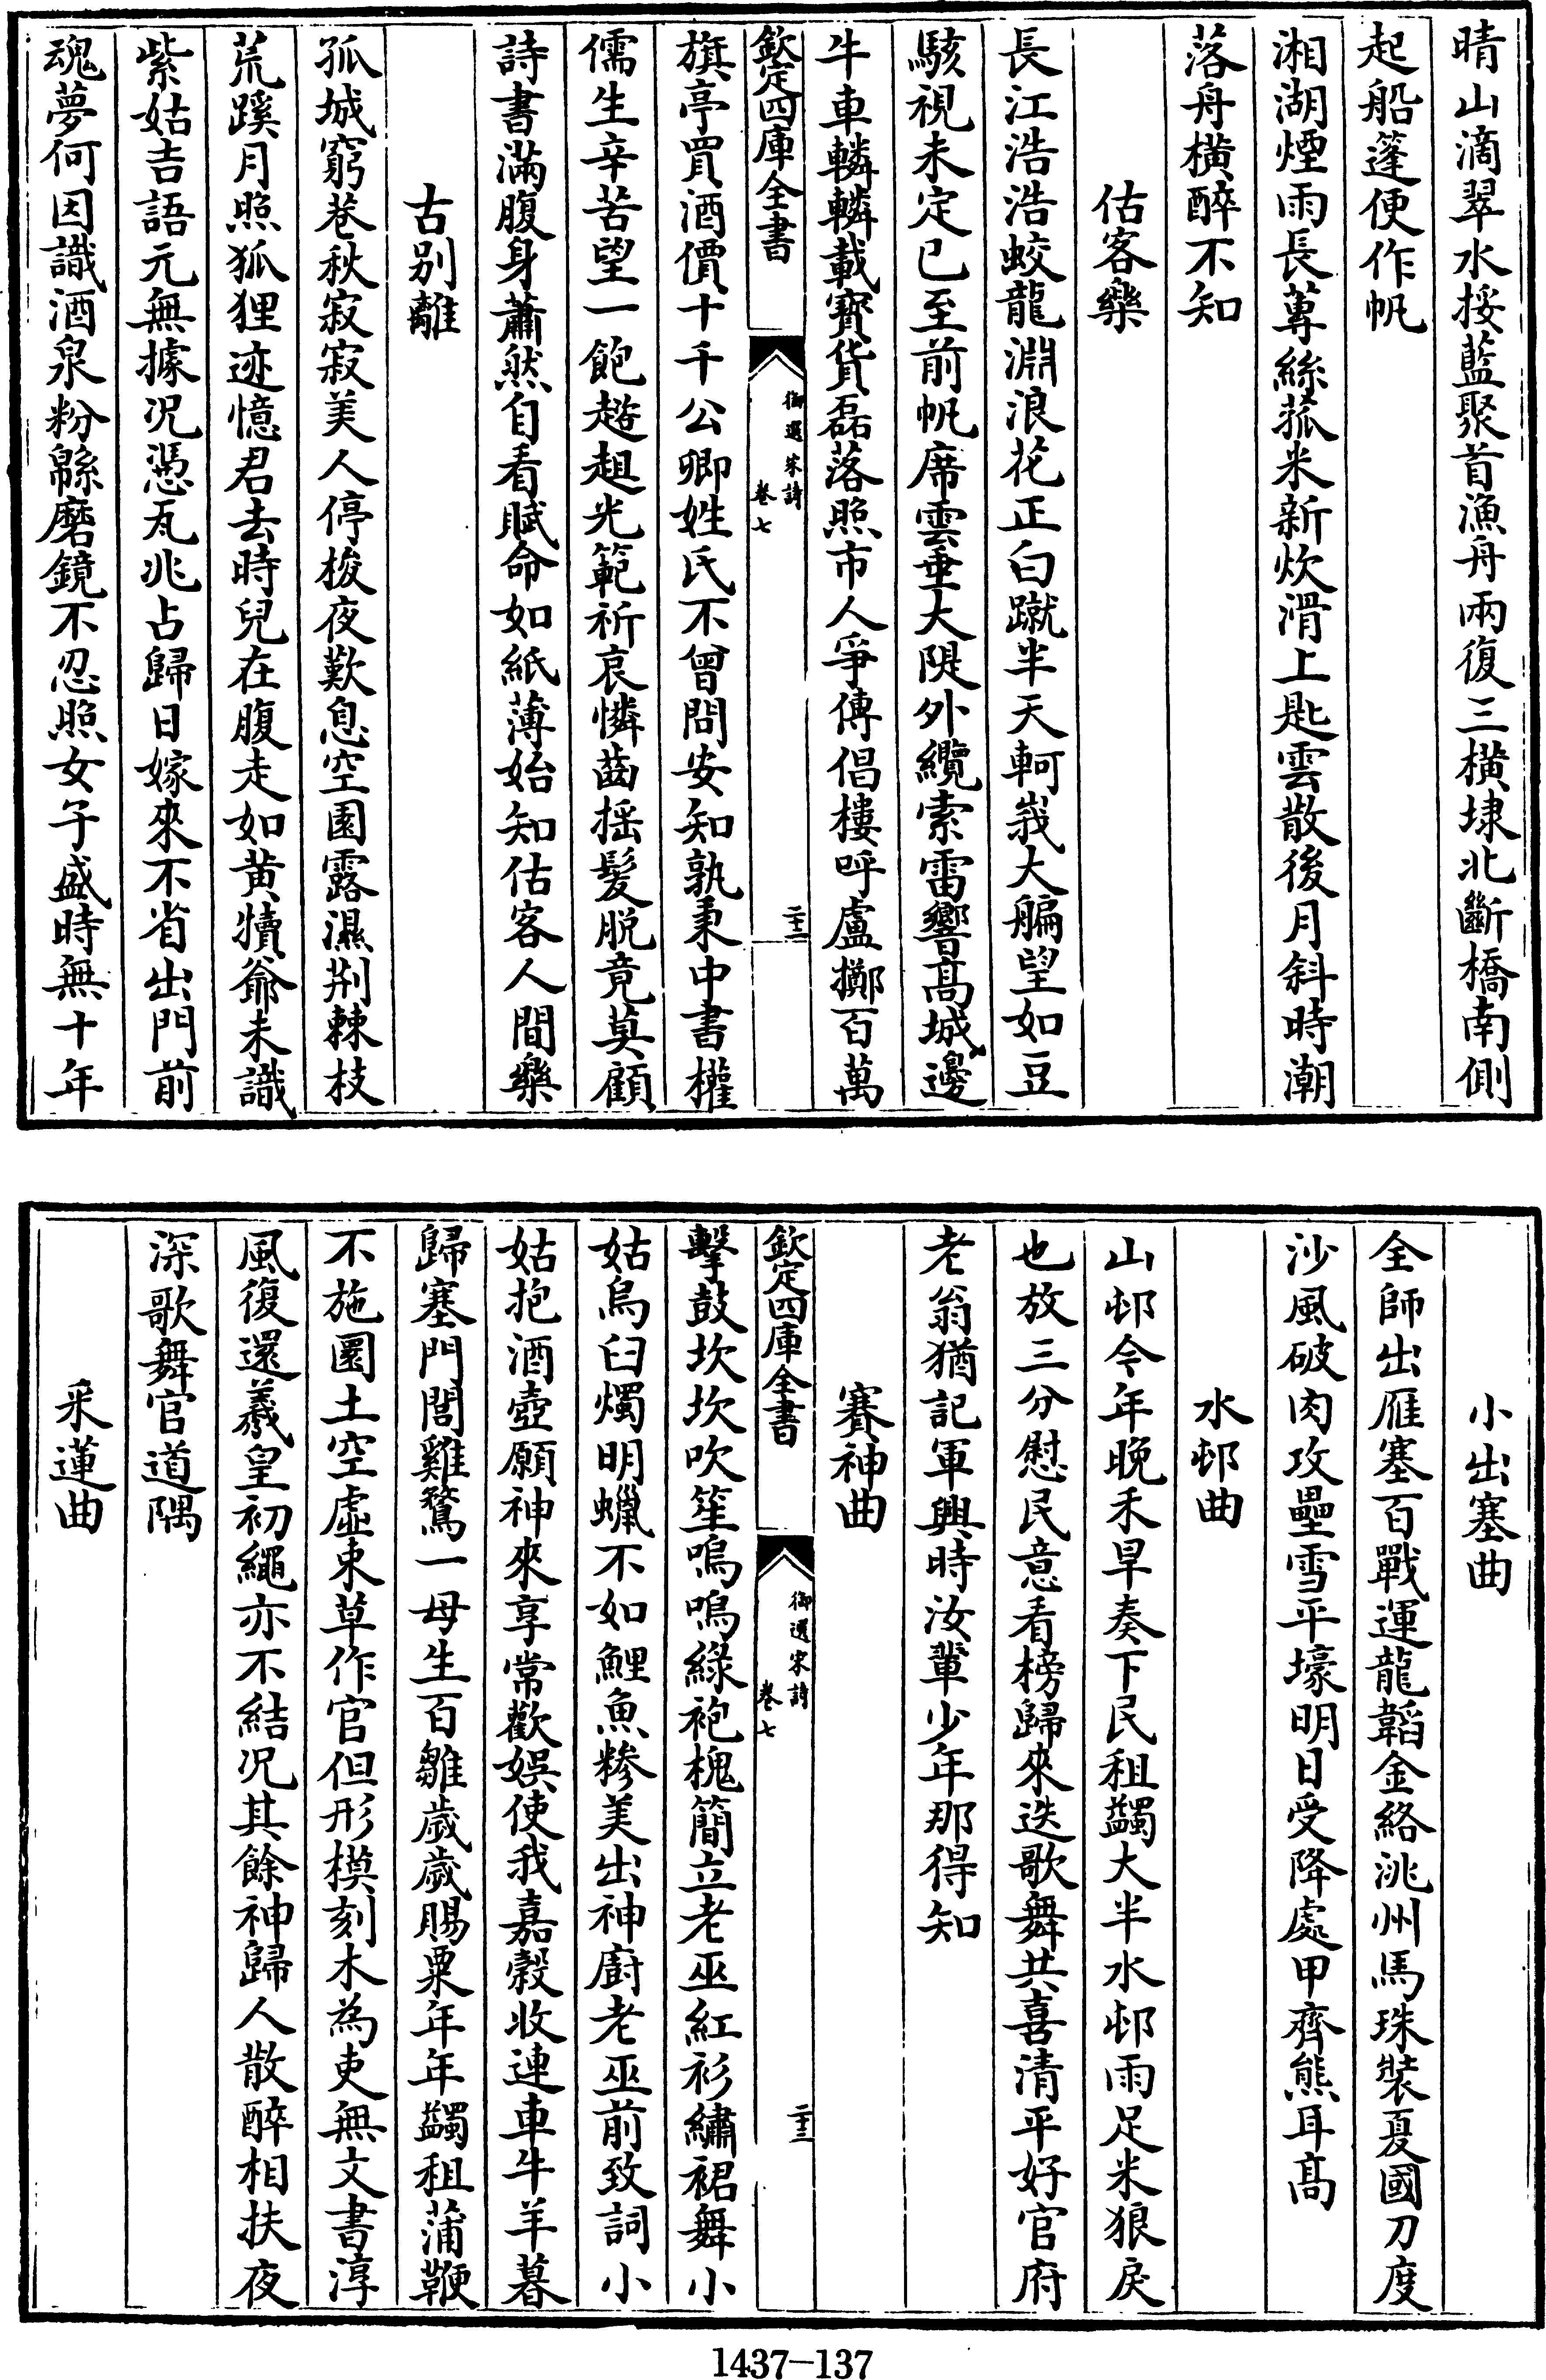 晴山滴翠水挼藍聚首漁舟兩復三橫埭北斷橋南側
起船篷便作帆
湘湖煙雨長蓴絲菰米新炊滑上匙雲散後月斜時潮
落舟橫醉不知
估客樂
長江浩浩蛟龍淵浪花正白蹴半天軻峩大艑望如豆
駭視未定已至前帆席雲垂大隄外纜索雷響髙城邊
牛車轔轔載寳貨磊落照市人爭傳倡樓呼盧擲百萬
欽定四庫全書
御選宋詩
卷七
二十二
旗亭買酒價十千公卿姓氏不曾問安知孰秉中書權
儒生辛苦望一飽趑趄光範祈哀憐齒揺髪脱竟莫顧
詩書滿腹身蕭然自看賦命如紙薄始知估客人間樂
古別離
孤城窮巷秋寂寂美人停梭夜歎息空園露濕荆棘枝
荒蹊月照狐狸迹憶君去時兒在腹走如黄犢爺未識
紫姑吉語元無據况憑瓦兆占歸日嫁來不省出門前
魂夢何因識酒泉粉緜磨鏡不忍照女子盛時無十年
小出塞曲
全師出雁塞百戰運龍韜金絡洮州馬珠裝夏國刀度
沙風破肉攻壘雪平壕明日受降處甲齊熊耳髙
水邨曲
山邨今年晚禾旱奏下民租蠲大半水邨雨足米狼戾
也放三分慰民意看榜歸來迭歌舞共喜清平好官府
老翁猶記軍興時汝輩少年那得知
賽神曲
欽定四庫全書
御選宋詩
卷七
二十三
擊鼓坎坎吹笙嗚嗚綠袍槐簡立老巫紅衫繡裙舞小
姑烏臼燭明蠟不如鯉魚糝美出神廚老巫前致詞小
姑抱酒壺願神來享常歡娛使我嘉穀收連車牛羊暮
歸塞門閭雞鶩一母生百雛歲歲賜粟年年蠲租蒲鞭
不施圜土空虛束草作官但形模刻木為吏無文書淳
風復還羲皇初繩亦不結况其餘神歸人散醉相扶夜
深歌舞官道隅
采蓮曲
1437—137